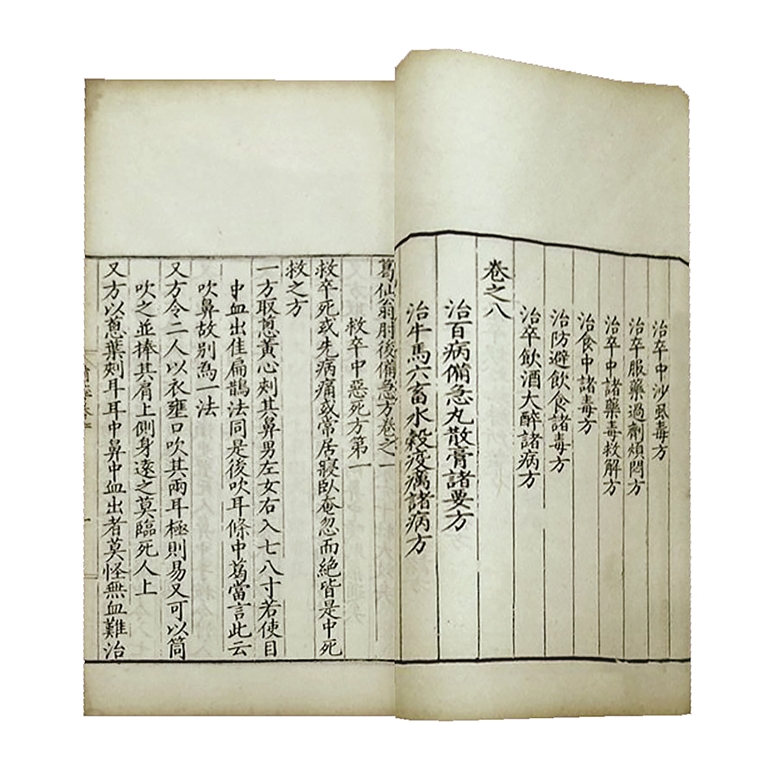 治卒中沙虱毒方
治卒服藥過劑煩悶方
治卒中諸藥毒救解方
治食中諸毒方
治防避飲食諸毒方
治卒飲酒大醉諸病方
卷之八
治百病備急丸散膏諸要方
治牛馬六畜水穀疫癘諸病方
葛仙翁肘後備急方卷之一
救卒中惡死方第一
救卒死或先病痛或常居寢臥奄忽而絶皆是中死
救之方
一方取葱黃心刾其鼻男左女右入七八寸若使目
中血出佳扁鵲法同是後吹耳條中葛當言此云
吹鼻故别爲一法
又方令二人以衣壅口吹其兩耳極則易又可以筒
吹之並捧其肩上側身遠之莫臨死人上
又方以葱葉刾耳耳中鼻中血出者莫怪無血難治